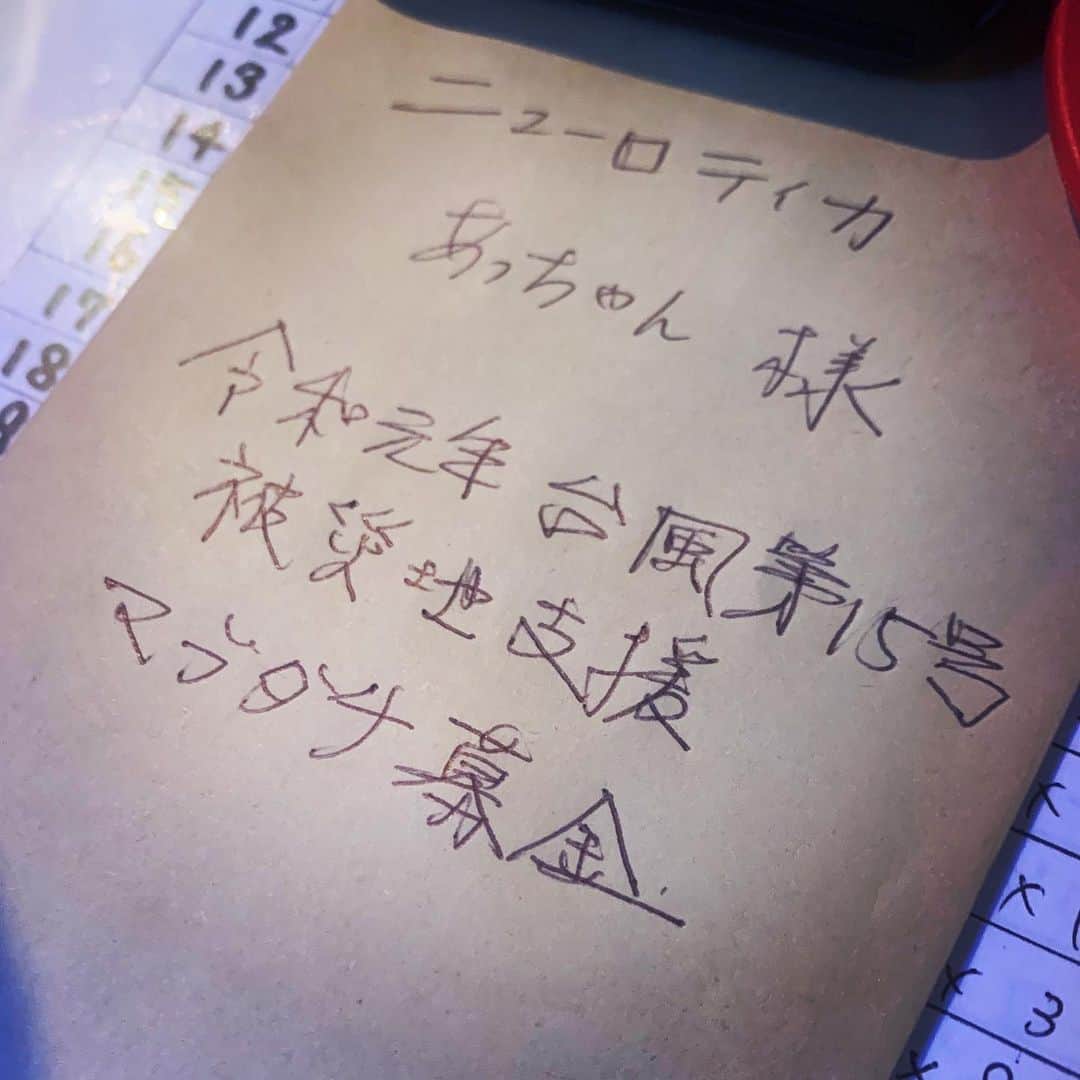 12
13
14
15
16
17
18
ニューロティカ
あっちゃん 様
令和元年 台風第15号
被災地支援
マグロチ募金
x
x
x 3
x